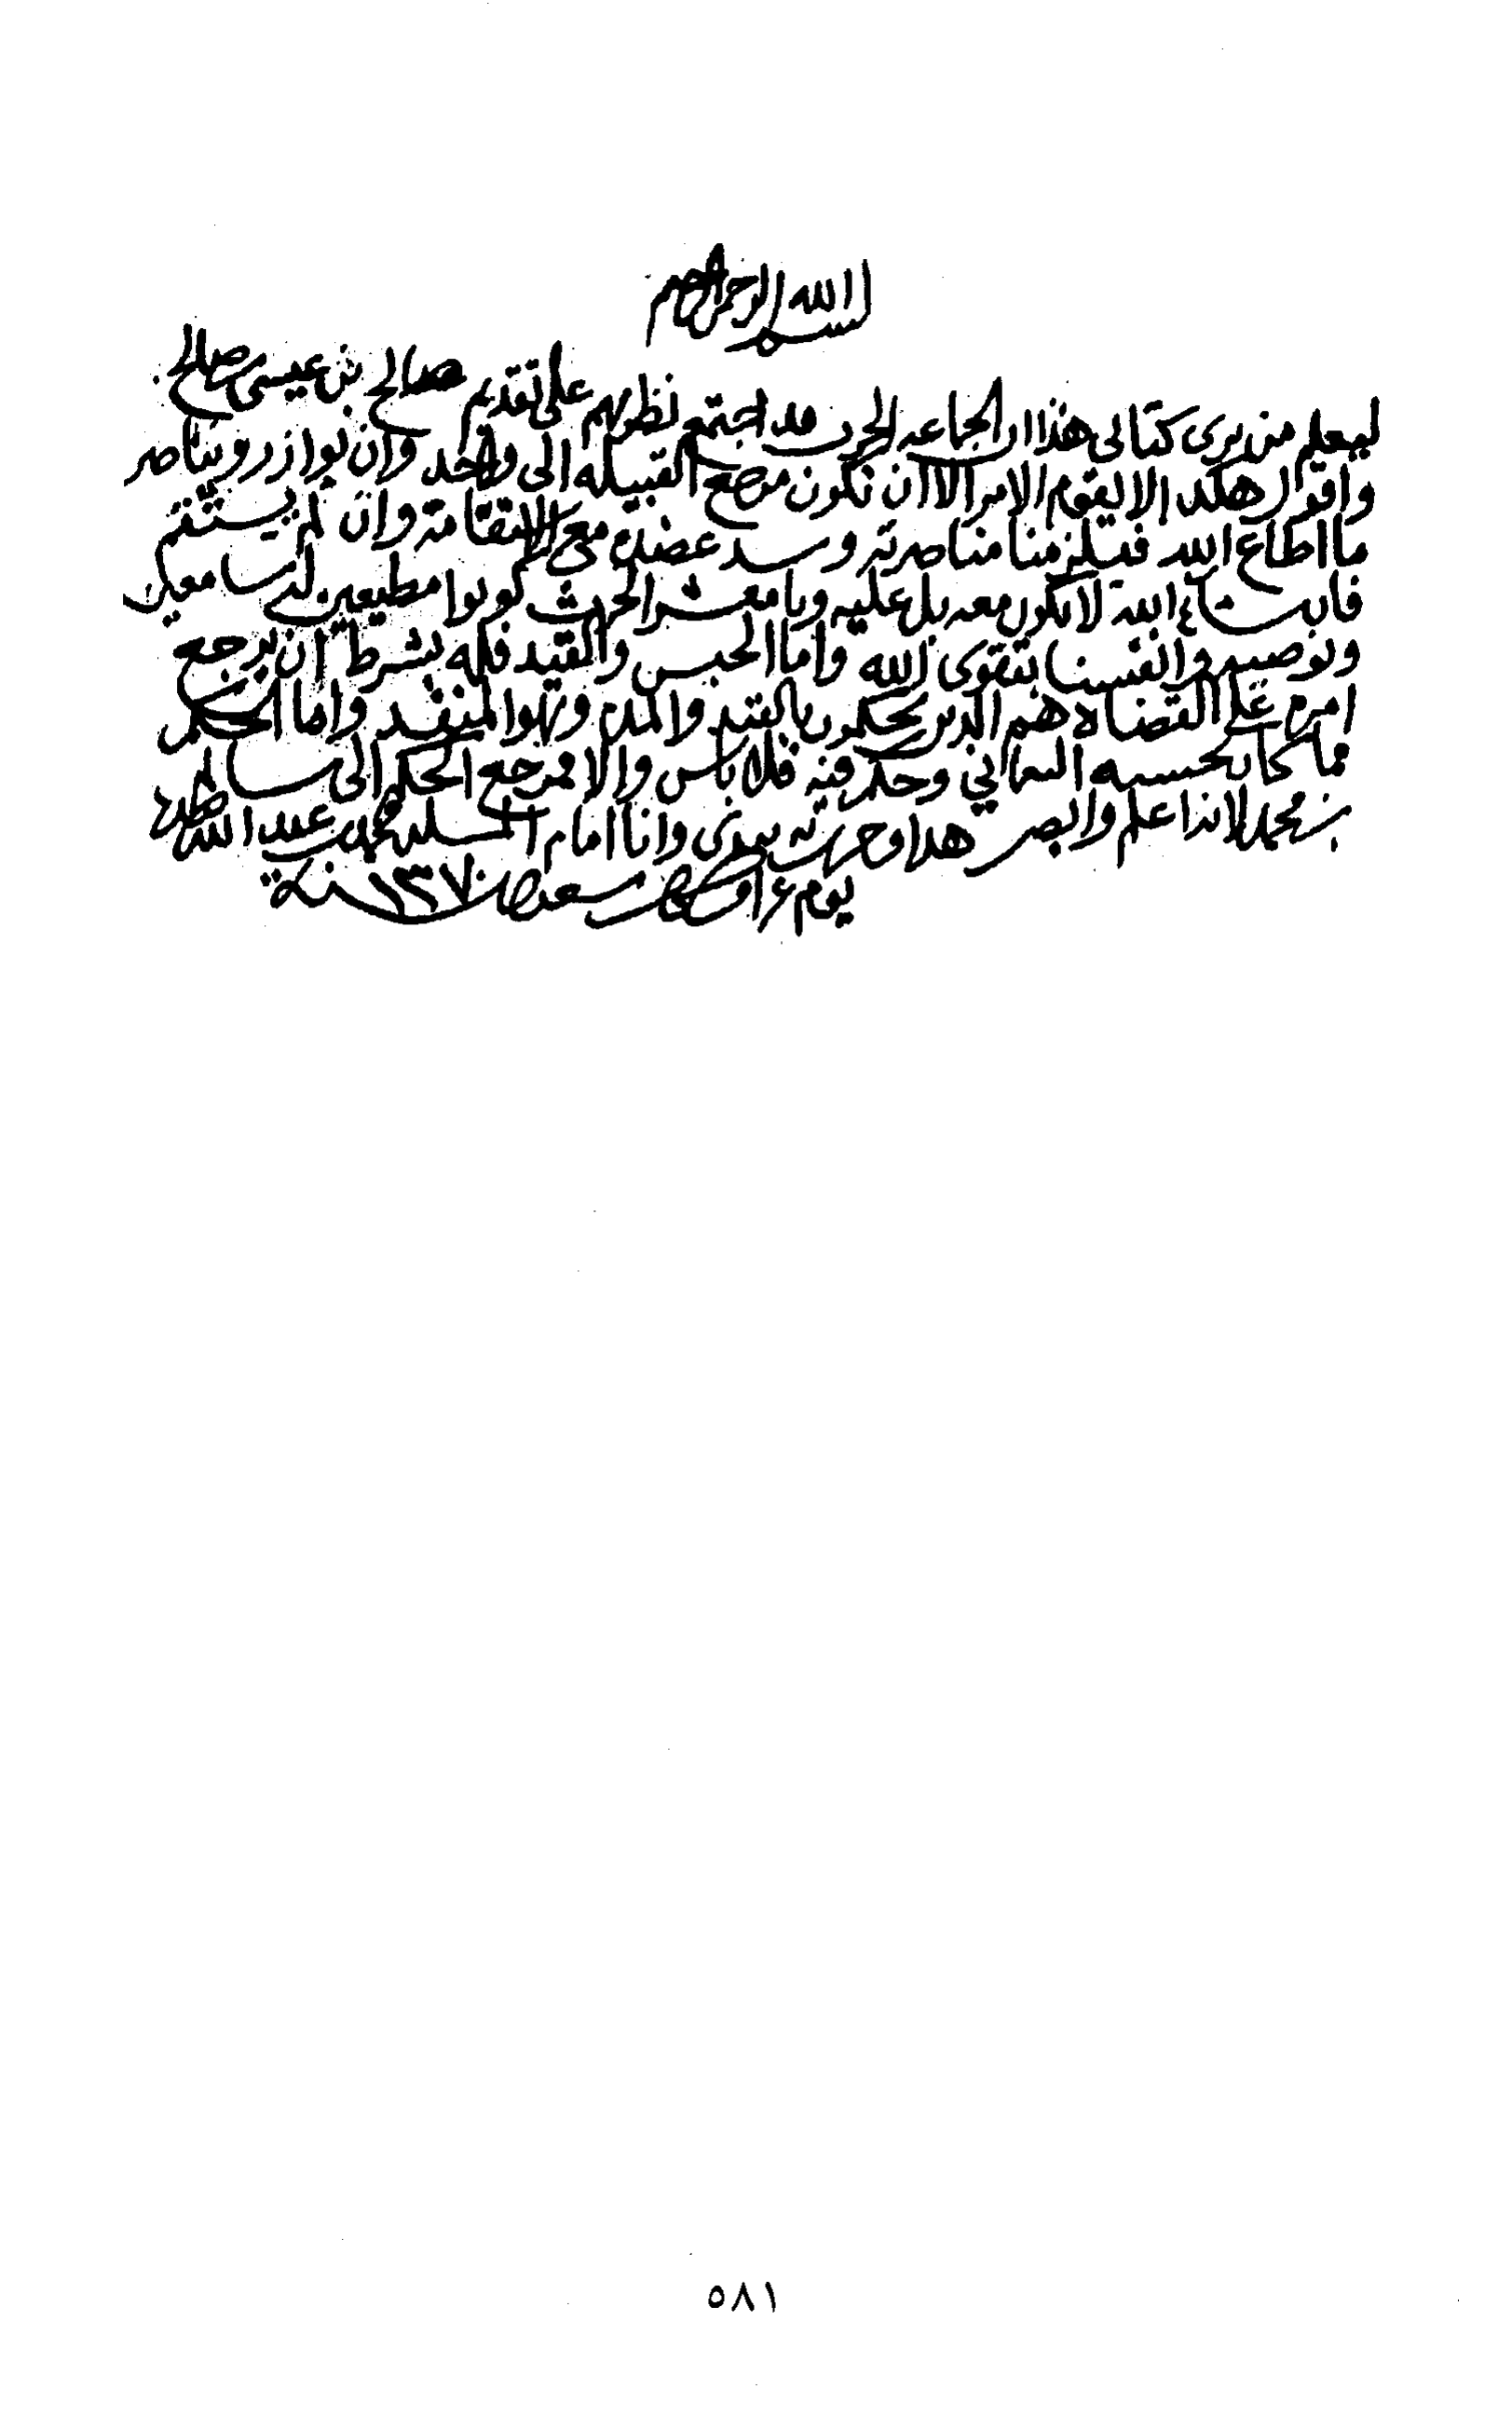 بسم الله الرحمن الرحيم
ليعلم من يرى كتابي هذا ان الجماعه الحرث قد اجتمع نظرهم على تقديم صالح بن عيسى بن صالح
واقول هكذا لا يقوم الامر الا ان تكون مرجع القبيله الى واحد وان يوازر ويناصر
ما اطاع الله فيلزمنا مناصرته وشد عضده مع الاستقامة وان لم يستقم
فان شاء الله لا نكون معه بل عليه ويا معشر الحرث كونوا مطيعين سامعين
ونوصيه وانفسنا بتقوى الله واما الحبس والقيد فله بشرط ان يرجع
امره على القضاه هم الذين يحكمون بالقيد والمده وهو المنفذ واما الحكم
فما كان يحسبه المعاني وحكم فيه فلا باس والا فمرجع الحكم الى سالم
بن محمد لانه اعلم وابصر هذا وحررته بيدي وانا امام المسلمين محمد بن عبد الله
يوم ٤ من سنة ١٣٧٠
٥٨١